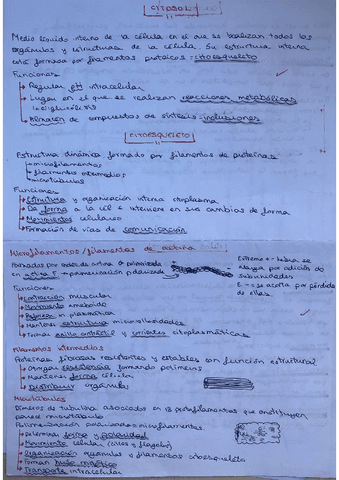 CITOSOL
Medio líquido interno de la célula en el que se localizan todos los
orgánulos y estructuras de la célula. Su estructura interna
está formada por filamentos proteicos = citoesqueleto
Funciones:
Regular pH intracelular
Lugar en el que se realizan reacciones metabólicas
Almacén de compuestos de síntesis = inclusiones
CITOESQUELETO
Estructura dinámica formada por filamentos de proteínas
microfilamentos
filamentos intermedios
microtúbulos
Funciones
Estructura y organización interna citoplasma
Da forma a la cél e interviene en sus cambios de forma
Movimientos celulares
Formación de vías de comunicación
Microfilamentos/filamentos de actina
Formados por de actina G polimerizada
en actina F → polimerización polarizada
Extremo + = hebra se
alarga por adición de
subunidades
E - = se acorta por pérdida
de ellas
Funciones
Contracción muscular
Movimiento ameboide
m. plasmática
Mantener estructura microvellosidades
Formar anillo contráctil y corrientes citoplasmáticas
Filamentos intermedios
Proteínas fibrosas resistentes y estables con función estructural
Otorgan resistencia formando polímeros
Mantener forma célula
Distribuir orgánulos
Microtúbulos
Dímeros de tubulina asociados en 13 protofilamentos que constituyen
pared microtúbulo
Polimerización polarizada = microfilamentos.
Determina forma y polaridad
Movimiento celular (cilios y flagelos)
Organización orgánulos y filamentos citoesqueleto
Forman huso mitótico
Transporte intracelular